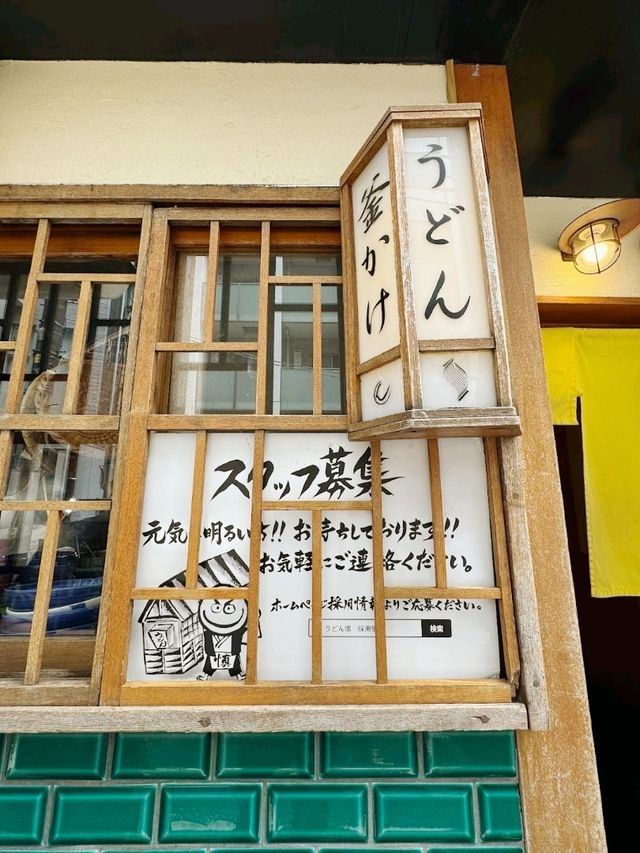 うどん
釜かけ
スタッフ募集
元気 明るい方!! お待ちしております!!
お気軽にご連絡ください。
ホームページ採用情報よりご応募ください。
うどん慎 採用情
検索
慎